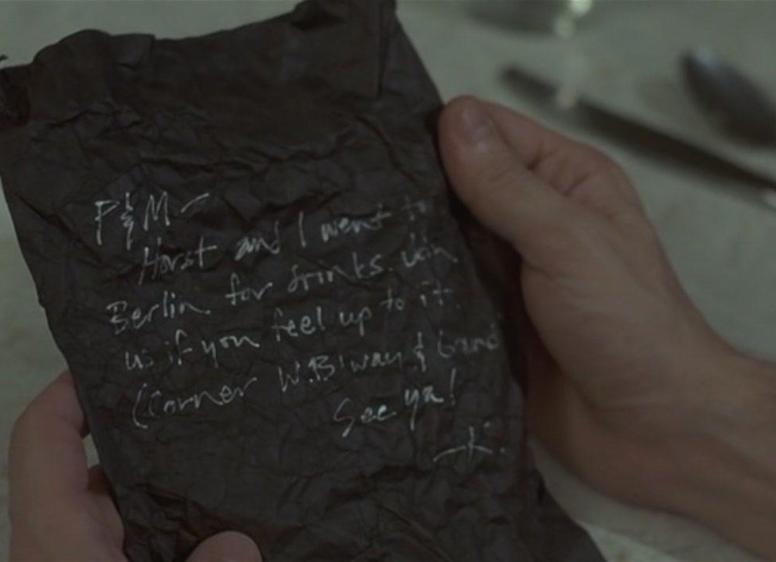 P & M —
Horst and I went to
Berlin for drinks. Join
us if you feel up to it.
(Corner W. B'way & Grand
See ya!